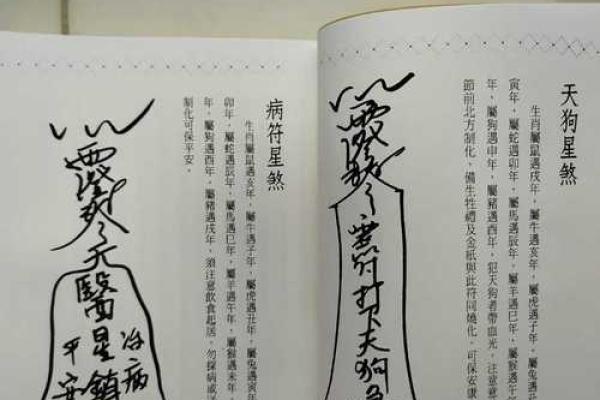 天狗星煞
生肖屬鼠遇戌年，屬牛遇亥年，屬虎遇子年，屬兔遇丑
寅年，屬蛇遇卯年，屬馬遇辰年，屬羊遇巳年，屬猴遇午年
年，屬狗遇申年，屬豬遇酉年，犯天狗者帶血光，注意意
節前北方制化，備生牲禮及金紙與此符同燒化，可保安康
符打天狗
病符星煞
生肖屬鼠遇亥年，屬牛遇子年，屬虎遇丑年，屬兔遇寅年
卯年，屬蛇遇辰年，屬馬遇巳年，屬羊遇午年，屬猴遇未年，
年，屬狗遇酉年，屬豬遇戌年，須注意飲食起居，勿探病或
制化可保平安。
治病
天醫星鎮
平安